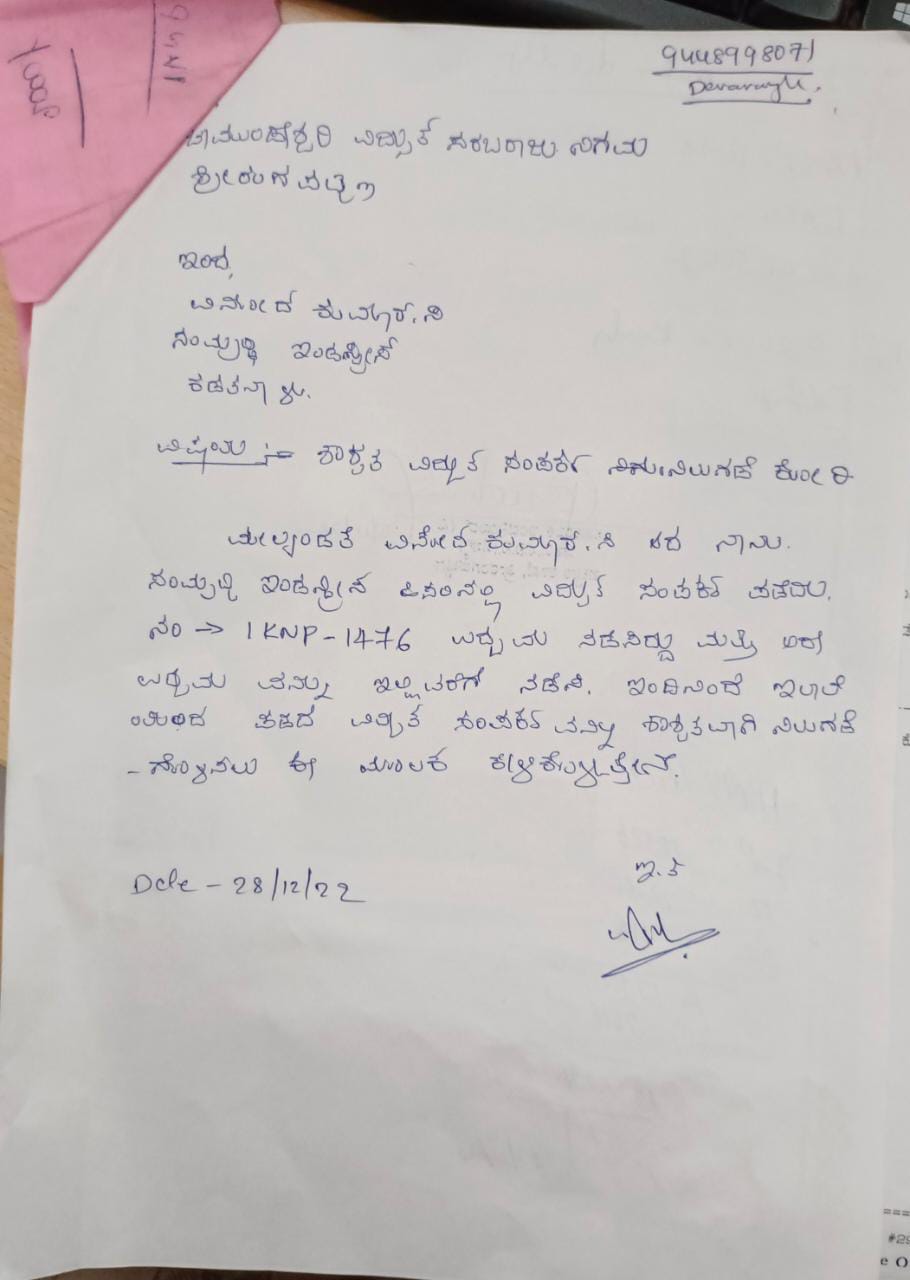 9448998071
Devarayu.
ಚಾಮುಂಡೇಶ್ವರಿ ವಿದ್ಯುತ್ ಸರಬರಾಜು ನಿಗಮ
ಶ್ರೀರಂಗಪಟ್ಟಣ
ಇಂದ,
ವಿನೋದ ಕುಮಾರ್.ಸಿ
ಸಮೃದ್ಧಿ ಇಂಡಸ್ಟ್ರೀಸ್
ಕಡತನಾಳು.
ವಿಷಯ :- ಶಾಶ್ವತ ವಿದ್ಯುತ್ ಸಂಪರ್ಕ ನಿಲುಗಡೆ ಕೋರಿ
ಮೇಲ್ಕಂಡತೆ ವಿನೋದ ಕುಮಾರ್.ಸಿ ಆದ ನಾನು.
ಸಮೃದ್ಧಿ ಇಂಡಸ್ಟ್ರೀಸ ಹೆಸರಿನಲ್ಲಿ ವಿದ್ಯುತ್ ಸಂಪರ್ಕ ಪಡೆದು.
ನಂ → IKNP-1476 ಉದ್ಯಮ ನಡೆಸಿದ್ದು ಮತ್ತೆ
ಉದ್ಯಮ ವನ್ನು ಇಲ್ಲಿವರೆಗೆ ನಡೆಸಿ. ಇಂದಿನಿಂದ ಇಲಾಖೆ
ಯಿಂದ ಪಡೆದ ವಿದ್ಯುತ ಸಂಪರ್ಕ ವನ್ನು ಶಾಶ್ವತವಾಗಿ ನಿಲುಗಡೆ
- ಗೊಳಿಸಲು ಈ ಮೂಲಕ ಕೇಳಿಕೊಳ್ಳುತ್ತೇನೆ.
Date - 28/12/22
ಇ.ತಿ